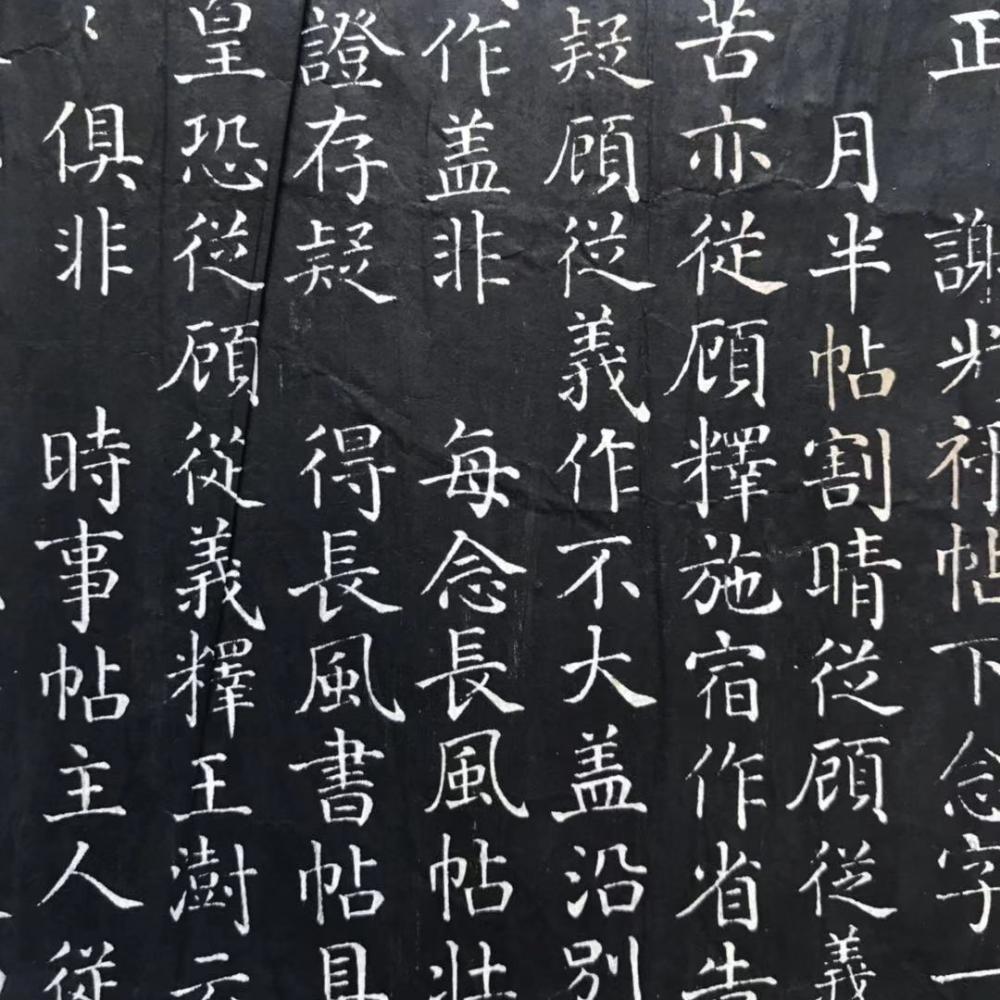 正 謝 帖下念字一
月半帖割晴從顧從義
苦亦從顧釋施宿作省告
疑顧從義作不大盖沿別
作盖非 每念長風帖壯
證存疑 得長風書帖具
皇恐從顧從義釋王澍云
俱非 時事帖主人從